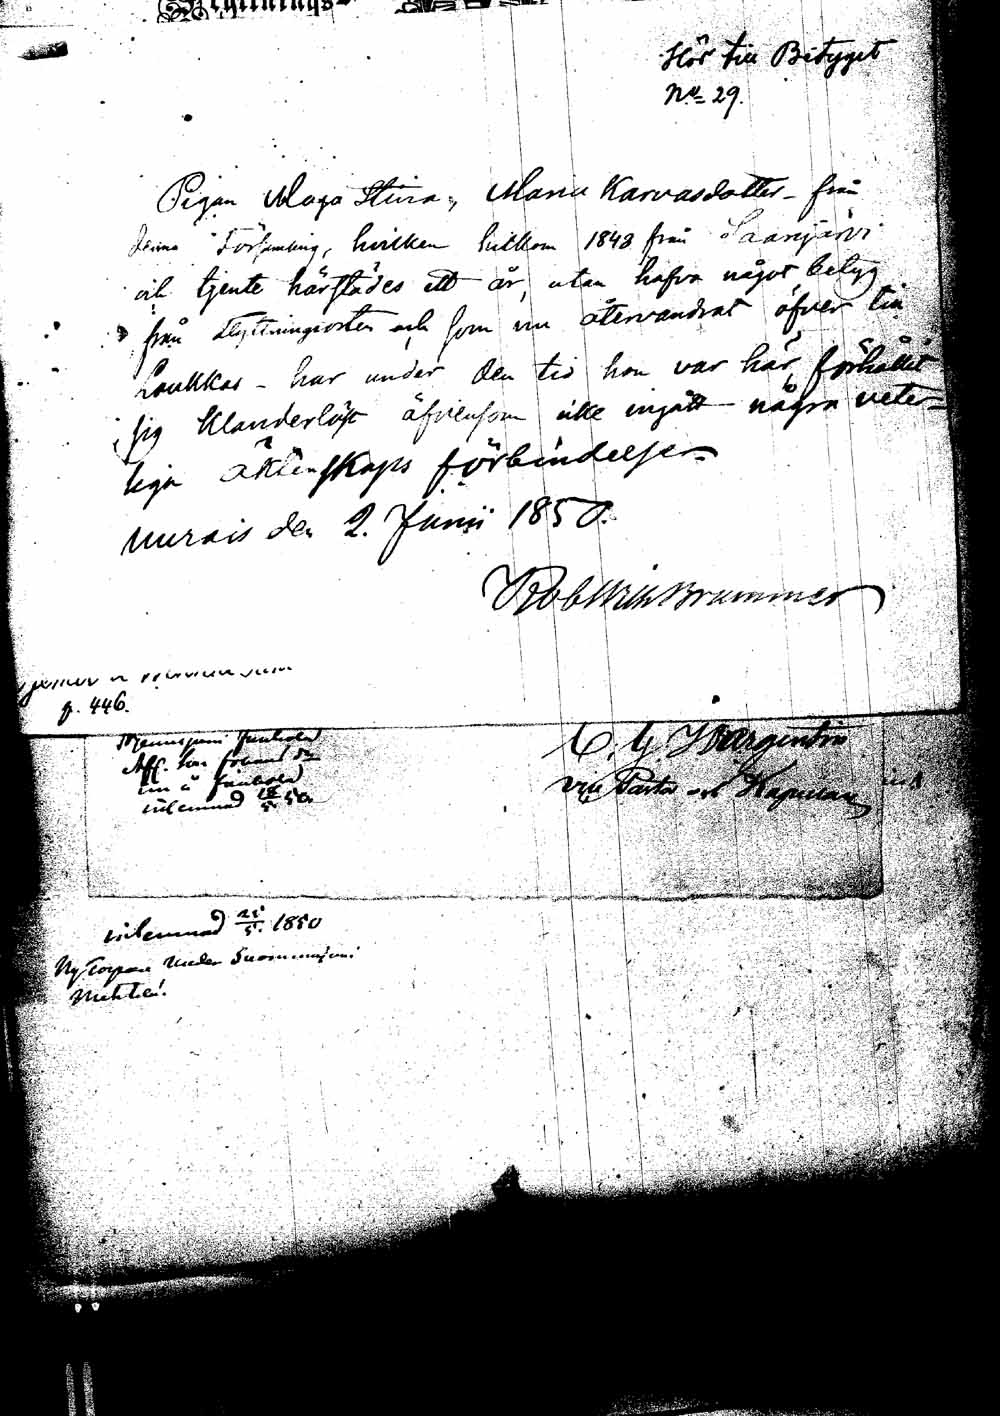 Hör till Betyget
No 29.
Pigan Maja Stina, Maria Karvasdotter från
denna Församling, hvilken hitkom 1848 från Saarijärvi
och tjente härstädes ett år, utan hafva något betyg
från flyttningsorten och som nu återvandrat öfver till
Laukkas - har under den tid hon var här, förhållit
sig klanderlöst äfvensom icke ingått några veter-
liga äktenskaps förbindelser
Uurais den 2. Junii 1850.
Rob Wilh Brummer
p. 446.
C. G. Wargentin
vice Pastor och Kapellan
inlemnad 50
inlemnad 25/5. 1850
Ny Torpare Under